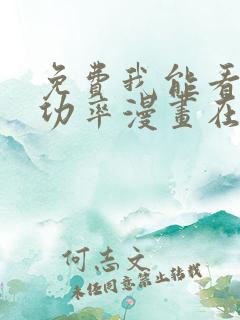 免費我能看
功率漫畫在
何志文
未经同意禁止转载